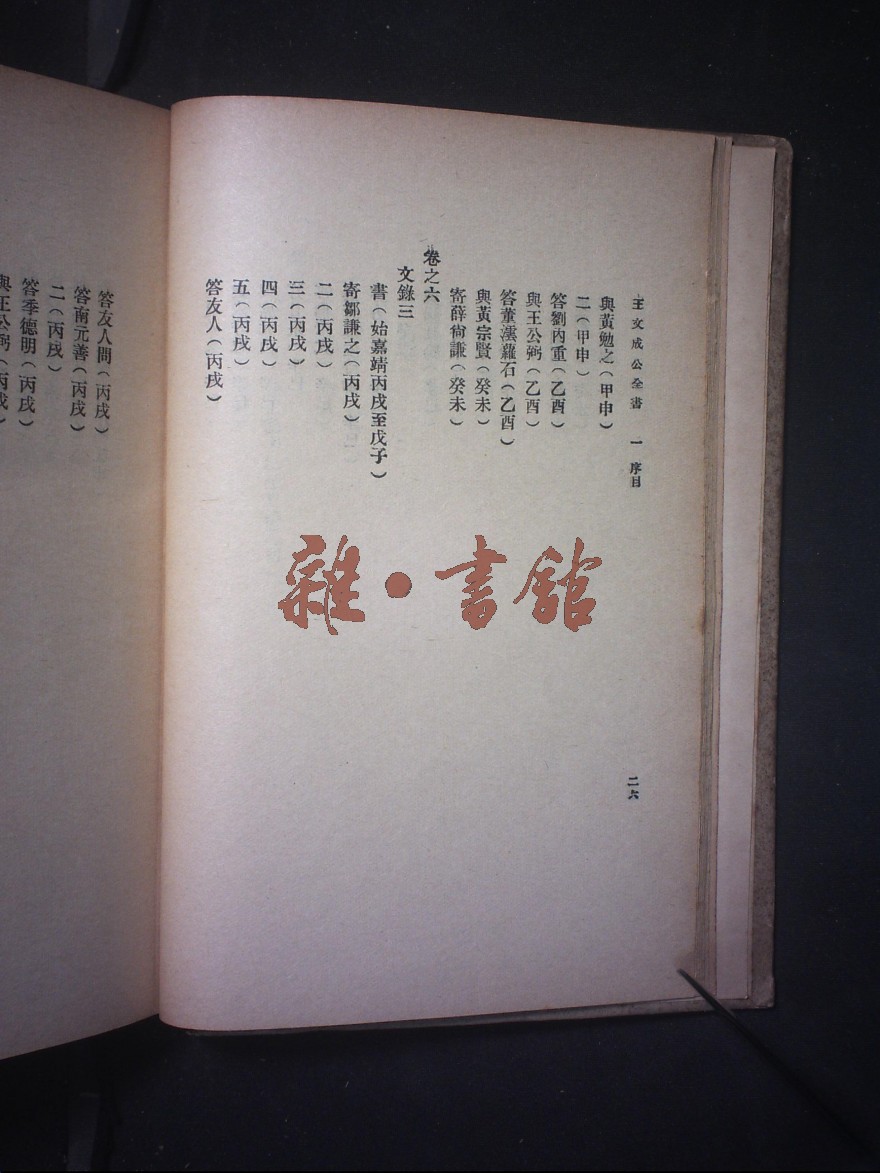 王文成公全書 一 序目
二六
與黃勉之(甲申)
二(甲申)
答劉內重(乙酉)
與王公弼(乙酉)
答董澐蘿石(乙酉)
與黃宗賢(癸未)
寄薛尙謙(癸未)
卷之六
文錄三
書(始嘉靖丙戌至戊子)
寄鄒謙之(丙戌)
二(丙戌)
三(丙戌)
四(丙戌)
五(丙戌)
答友人(丙戌)
答友人問(丙戌)
答南元善(丙戌)
二(丙戌)
答季德明(丙戌)
與王公弼(丙戌)
雜·書館